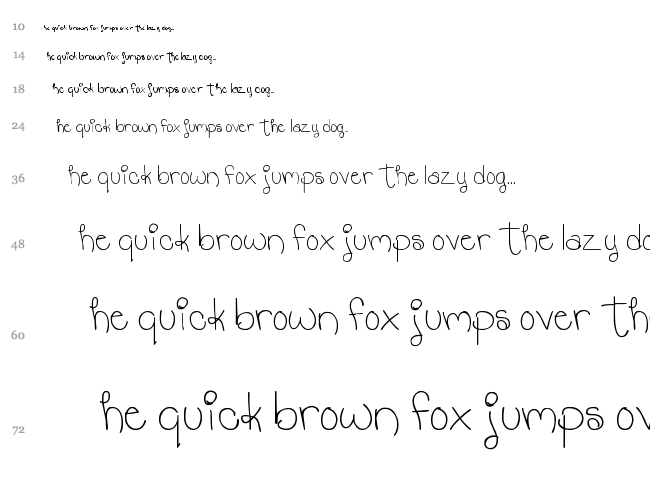 10 he quick brown fox jumps over the lazy dog...
14 he quick brown fox jumps over the lazy dog...
18 he quick brown fox jumps over the lazy dog...
24 he quick brown fox jumps over the lazy dog...
36 he quick brown fox jumps over the lazy dog...
48 he quick brown fox jumps over the lazy do
60 he quick brown fox jumps over th
72 he quick brown fox jumps ov